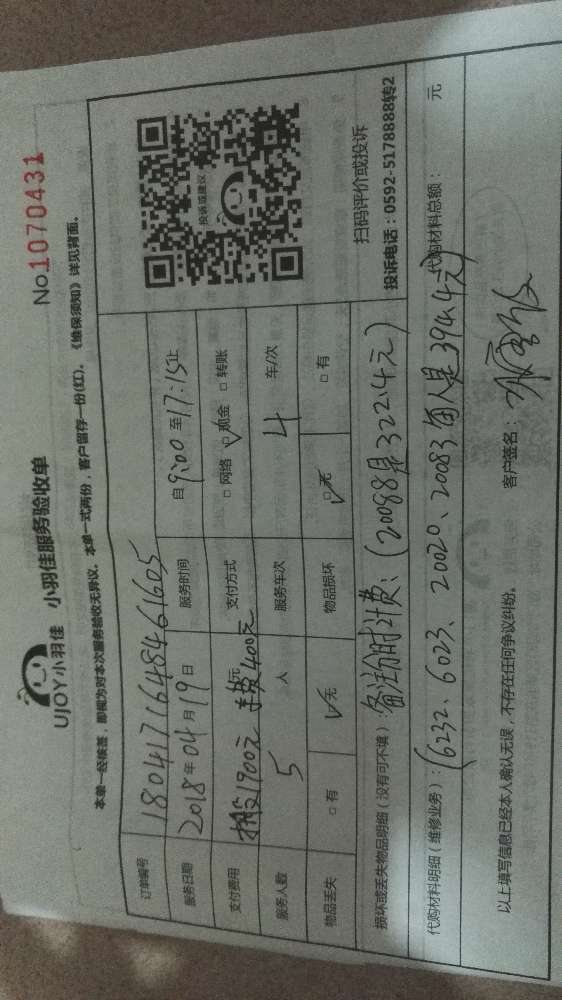 UJOY小羽佳 小羽佳服务验收单 No.1070431
本单一经核签，即视为对本次服务验收无异议。本单一式两份，客户留存一份(红)。《维保须知》详见背面。
订单编号 180417164846 1605
服务日期 2018年04月19日 服务时间 自9:00至17:15止
支付费用 搬家1900元 400元 支付方式 □网络 ☑现金 □转账
服务人数 5 人 服务车次 4 车/次
物品丢失 □有 ☑无 物品损坏 ☑无 □有
投诉或建议
扫码评价或投诉
投诉电话：0592-5178888转2
损坏或丢失物品明细（没有可不填）：备注分时计费：（20098是322.4元）
代购材料明细（维修业务）：（6232、6023、20020、20083每人是394.4元） 代购材料总额： 元
以上填写信息已经本人确认无误，不存在任何争议纠纷。 客户签名：